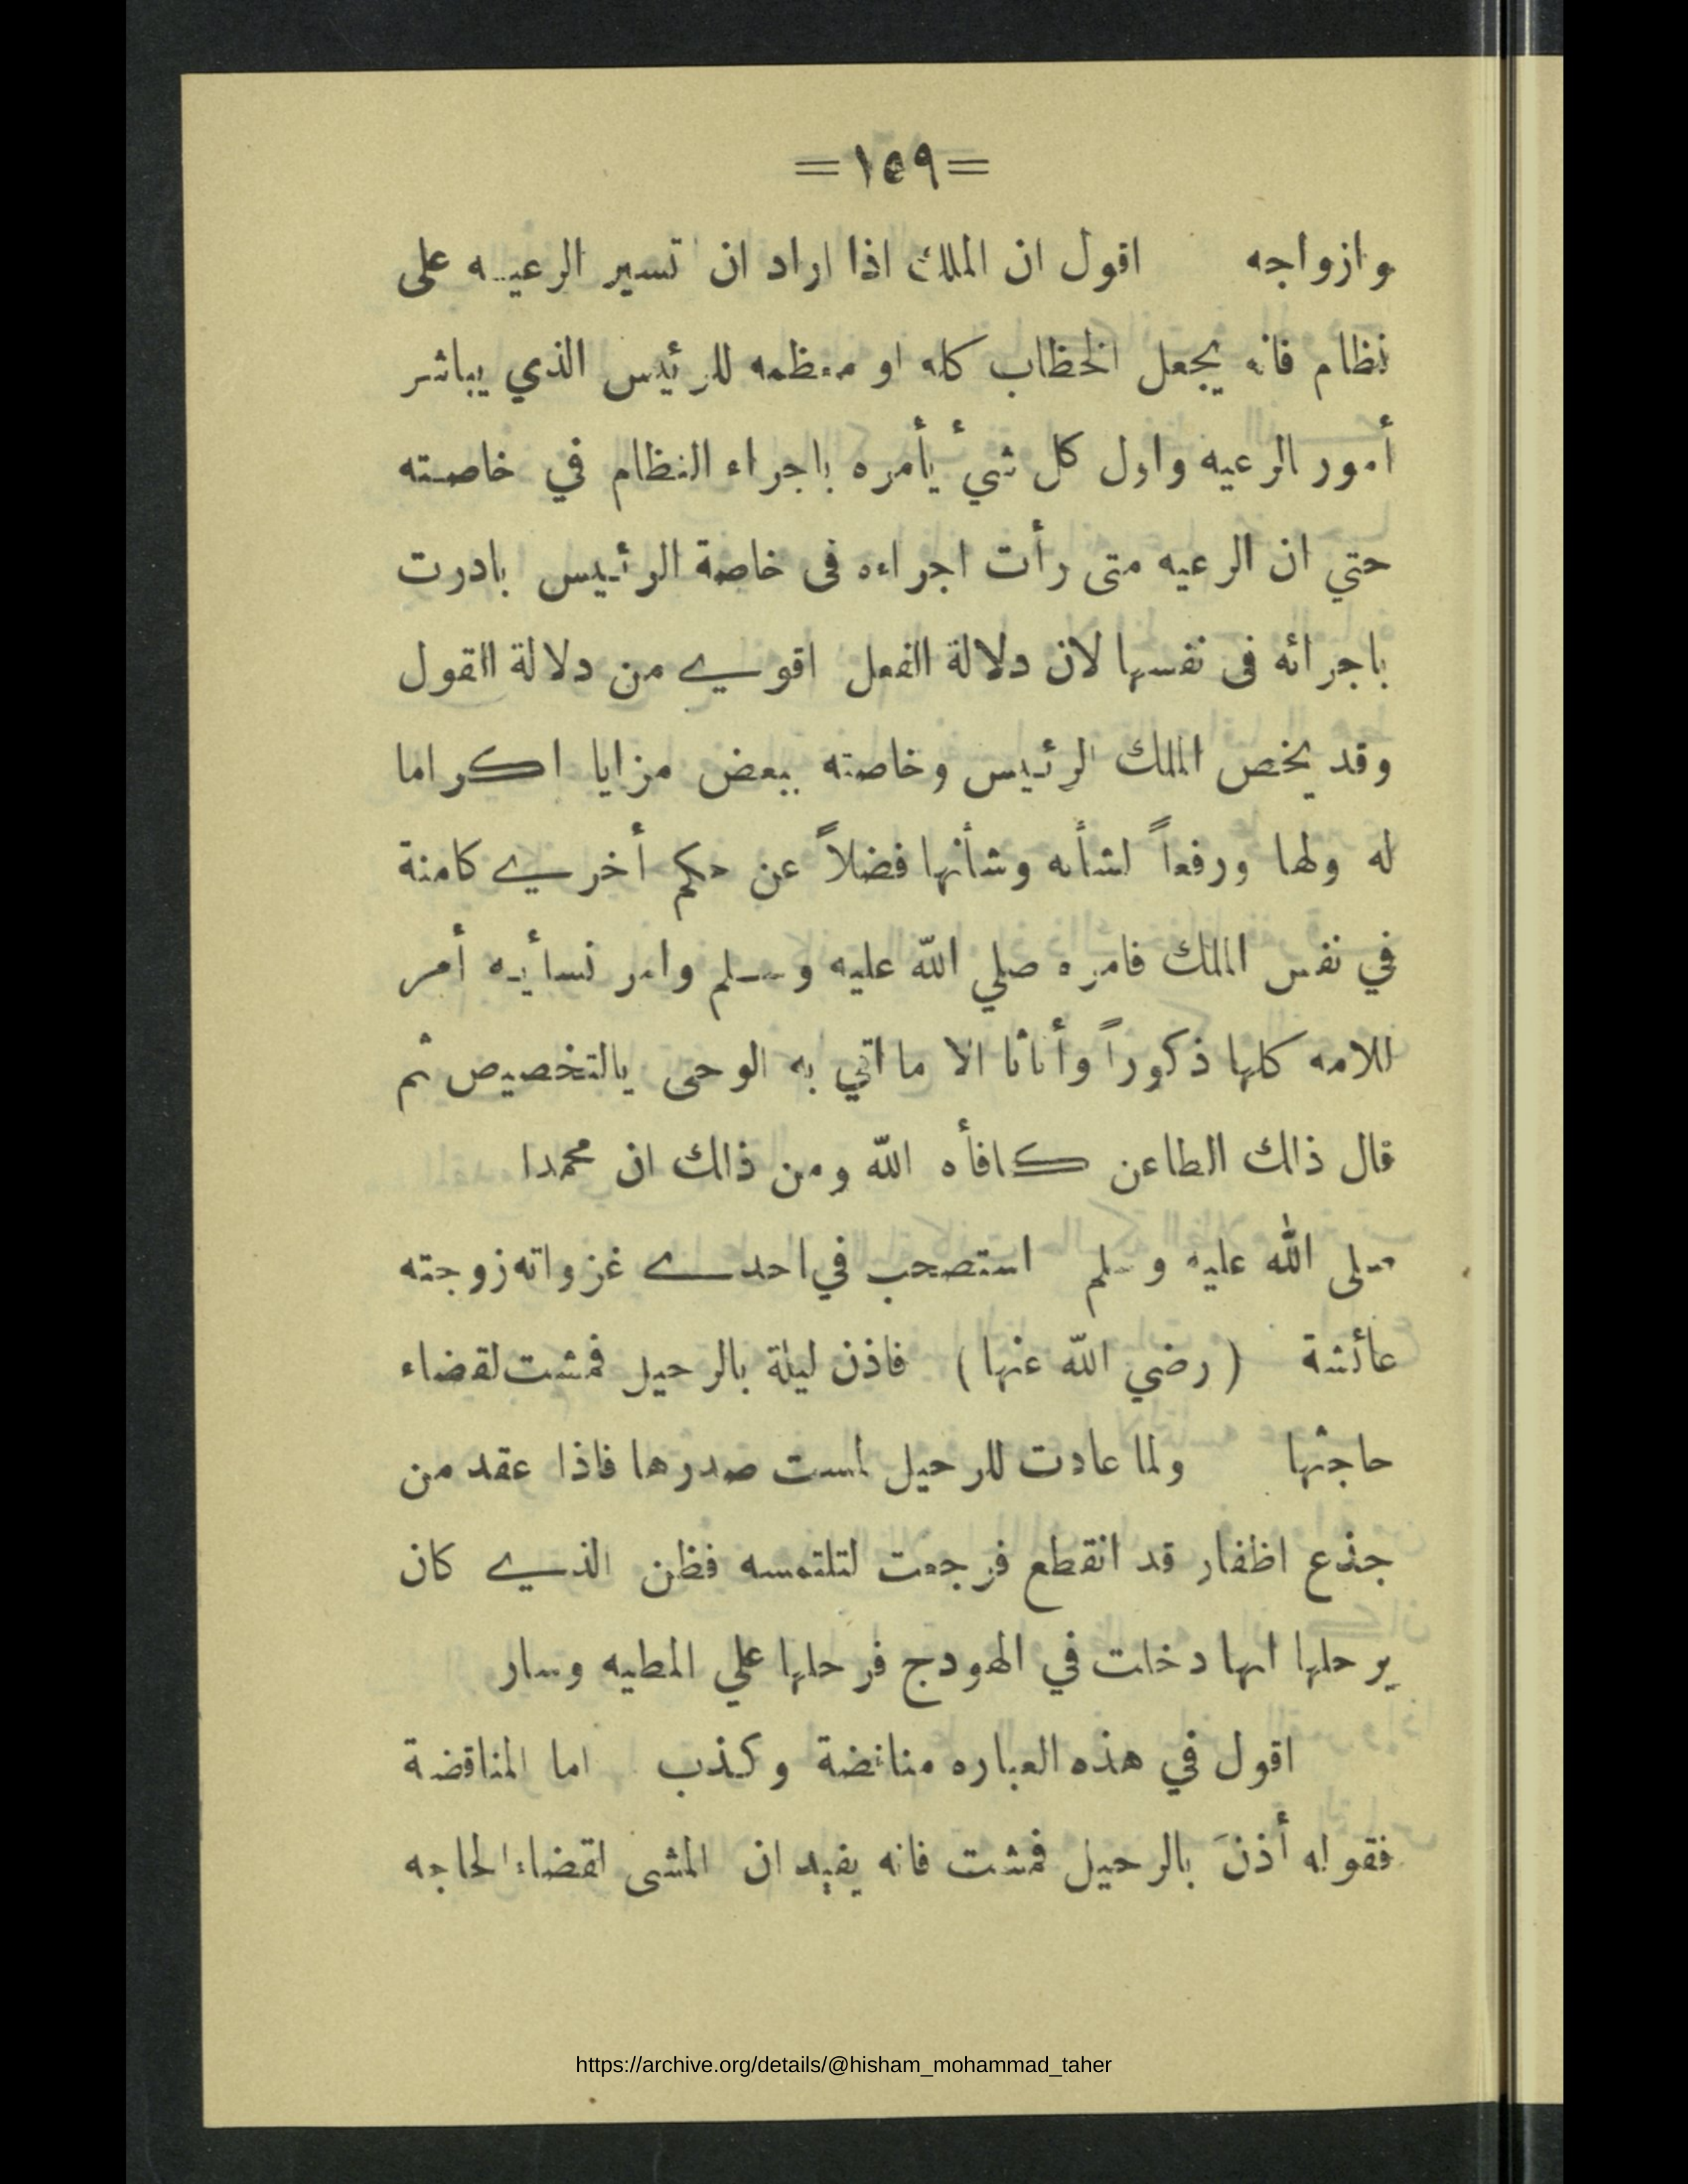 =١٥٩=
وازواجه اقول ان الملك اذا اراد ان تسير الرعيه على
نظام فانه يجعل الخظاب كله او معظمه للرئيس الذي يباشر
أمور الرعيه واول كل شيء يأمره باجراء النظام في خاصته
حتي ان الرعيه متى رأت اجراءه فى خاصة الرئيس بادرت
باجرائه فى نفسها لان دلالة الفعل اقوي من دلالة القول
وقد يخص الملك الرئيس وخاصته ببعض مزايا اكراما
له ولها ورفعاً لشأنه وشأنها فضلاً عن حكم أخري كامنة
في نفس الملك فامره صلي الله عليه وسلم وامر نسأيه أمر
للامه كلها ذكوراً وأناثا الا ما اتي به الوحى يالتخصيص ثم
قال ذالك الطاعن كافأه الله ومن ذالك ان محمدا
صلى الله عليه وسلم استصحب في احدے غزواته زوجته
عائشة (رضي الله عنها) فاذن ليلة بالرحيل فمشت لقضاء
حاجتها ولما عادت للرحيل لمست صدرها فاذا عقد من
جذع اظفار قد انقطع فرجعت لتلتمسه فظن الذي كان
يرحلها انها دخلت في الهودج فرحلها علي المطيه وسار
اقول في هذه العباره مناقضة وكذب اما المناقضة
فقوله أذنَ بالرحيل فمشت فانه يفيد ان المشى لقضاء الحاجه
https://archive.org/details/@hisham_mohammad_taher